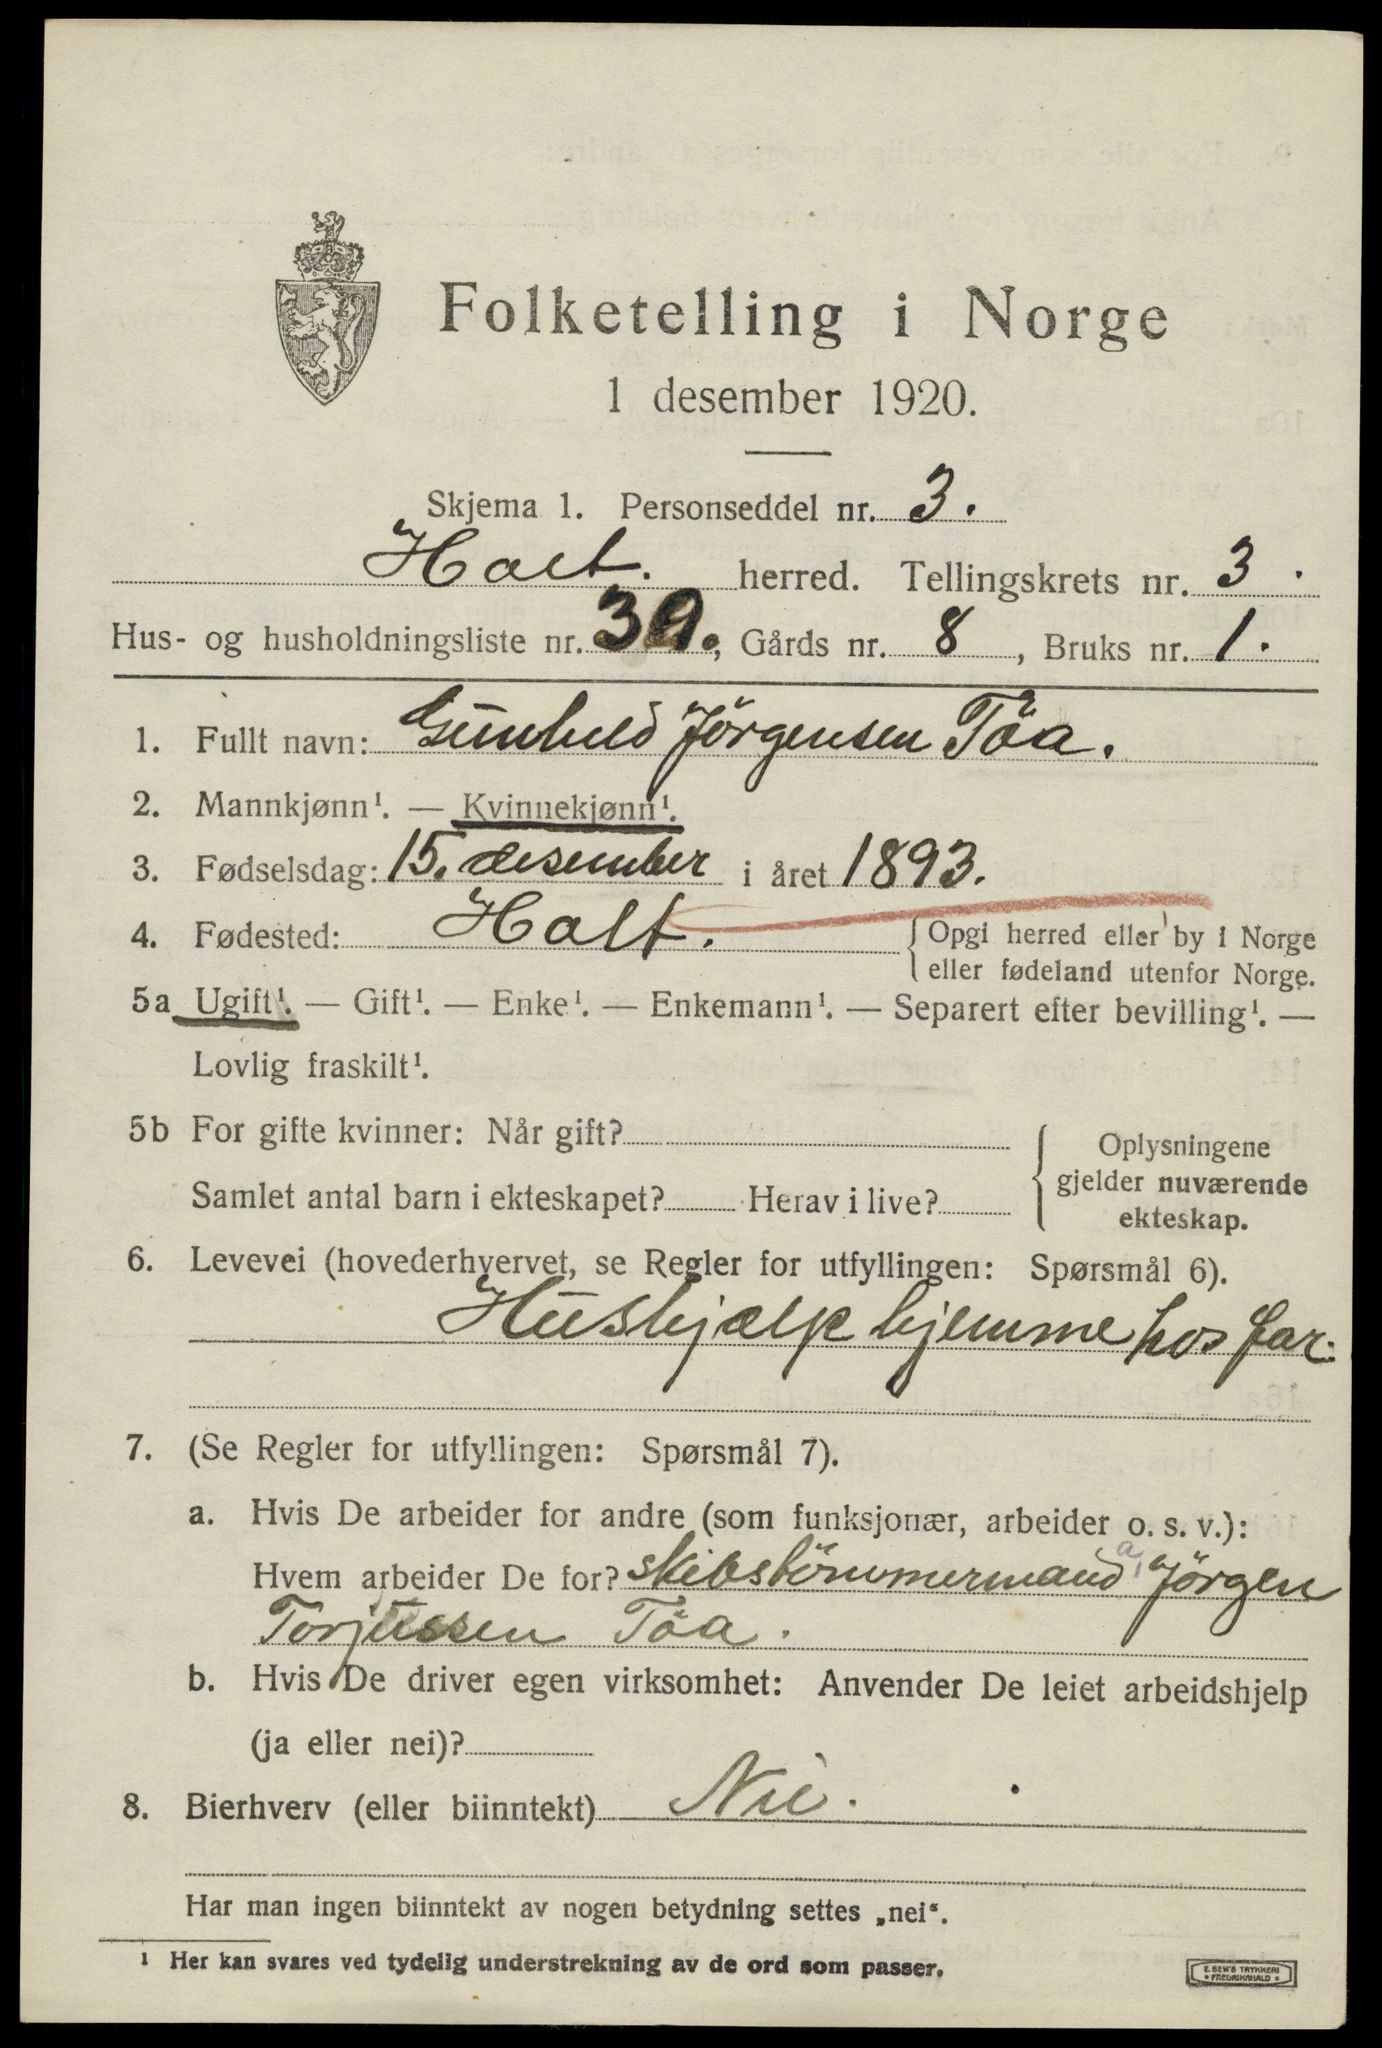 Folketelling i Norge
1 desember 1920.
Skjema 1. Personseddel nr. 3.
Holt. herred. Tellingskrets nr. 3.
Hus- og husholdningsliste nr. 39., Gårds nr. 8, Bruks nr. 1.
1. Fullt navn: Gunhild Jørgensen Töa.
2. Mannkjønn¹. — Kvinnekjønn¹.
3. Fødselsdag: 15. desember i året 1893.
4. Fødested: Holt. { Opgi herred eller by i Norge
eller fødeland utenfor Norge.
5a Ugift¹. — Gift¹. — Enke¹. — Enkemann¹. — Separert efter bevilling¹. —
Lovlig fraskilt¹.
5b For gifte kvinner: Når gift?
Samlet antal barn i ekteskapet? Herav i live?
{ Oplysningene
gjelder nuværende
ekteskap.
6. Levevei (hovederhvervet, se Regler for utfyllingen: Spørsmål 6).
Hushjælp hjemme hos far.
7. (Se Regler for utfyllingen: Spørsmål 7).
a. Hvis De arbeider for andre (som funksjonær, arbeider o. s. v.):
Hvem arbeider De for? skibstömmermand Jørgen
Torjussen Töa.
b. Hvis De driver egen virksomhet: Anvender De leiet arbeidshjelp
(ja eller nei)?
8. Bierhverv (eller biinntekt) Nei.
Har man ingen biinntekt av nogen betydning settes „nei“.
¹ Her kan svares ved tydelig understrekning av de ord som passer.
E. SEM'S TRYKKERI
FREDRIKSHALD